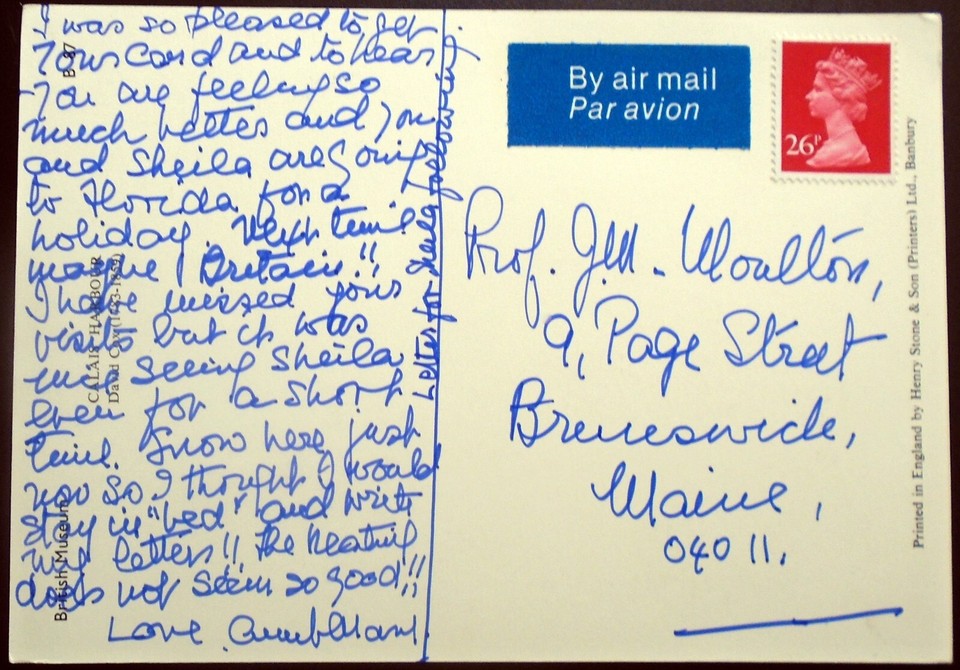 I was so pleased to get
your card and to hear
you are feeling so
much better and you
and Sheila are going
to Florida for a
holiday. Next time
maybe Britain!!
I have missed your
visits but it was
nice seeing Sheila
even for a short
time. Snow here just
now so I thought I would
stay in "bed" and write
my letters!! The heating
does not seem so good!!
Love
Letter for Sheila following.
British Museum
B 87
CALAIS HARBOUR
David Cox (1783-1859)
By air mail
Par avion
26P
Prof. J.M. Moulton,
9, Page Street
Brunswick,
Maine,
04011.
Printed in England by Henry Stone & Son (Printers) Ltd., Banbury